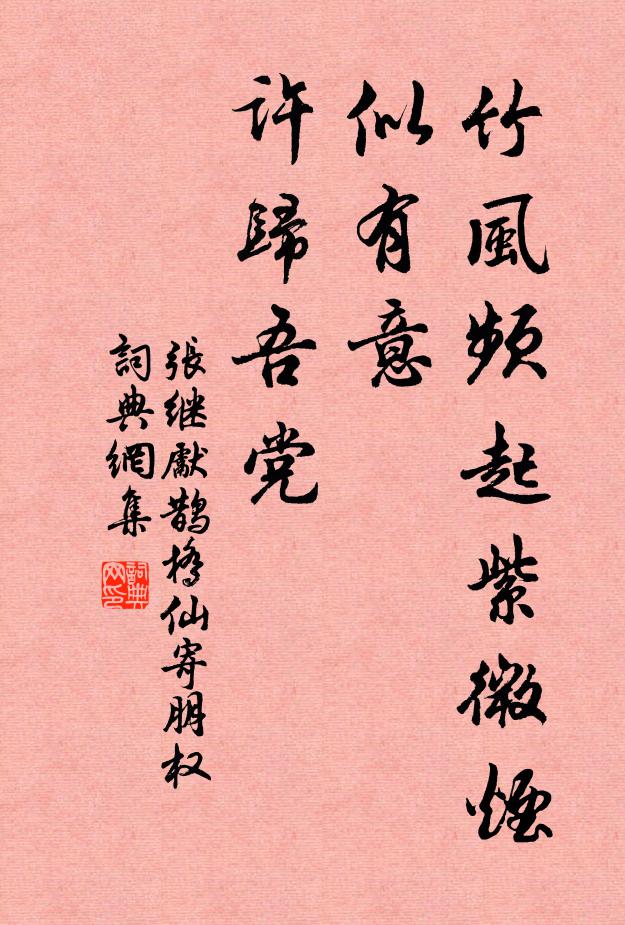 竹風頻起紫微煙
似有意
許歸吾党
張继獻鹊橋仙寄朋权
詞典網集
詞典网印